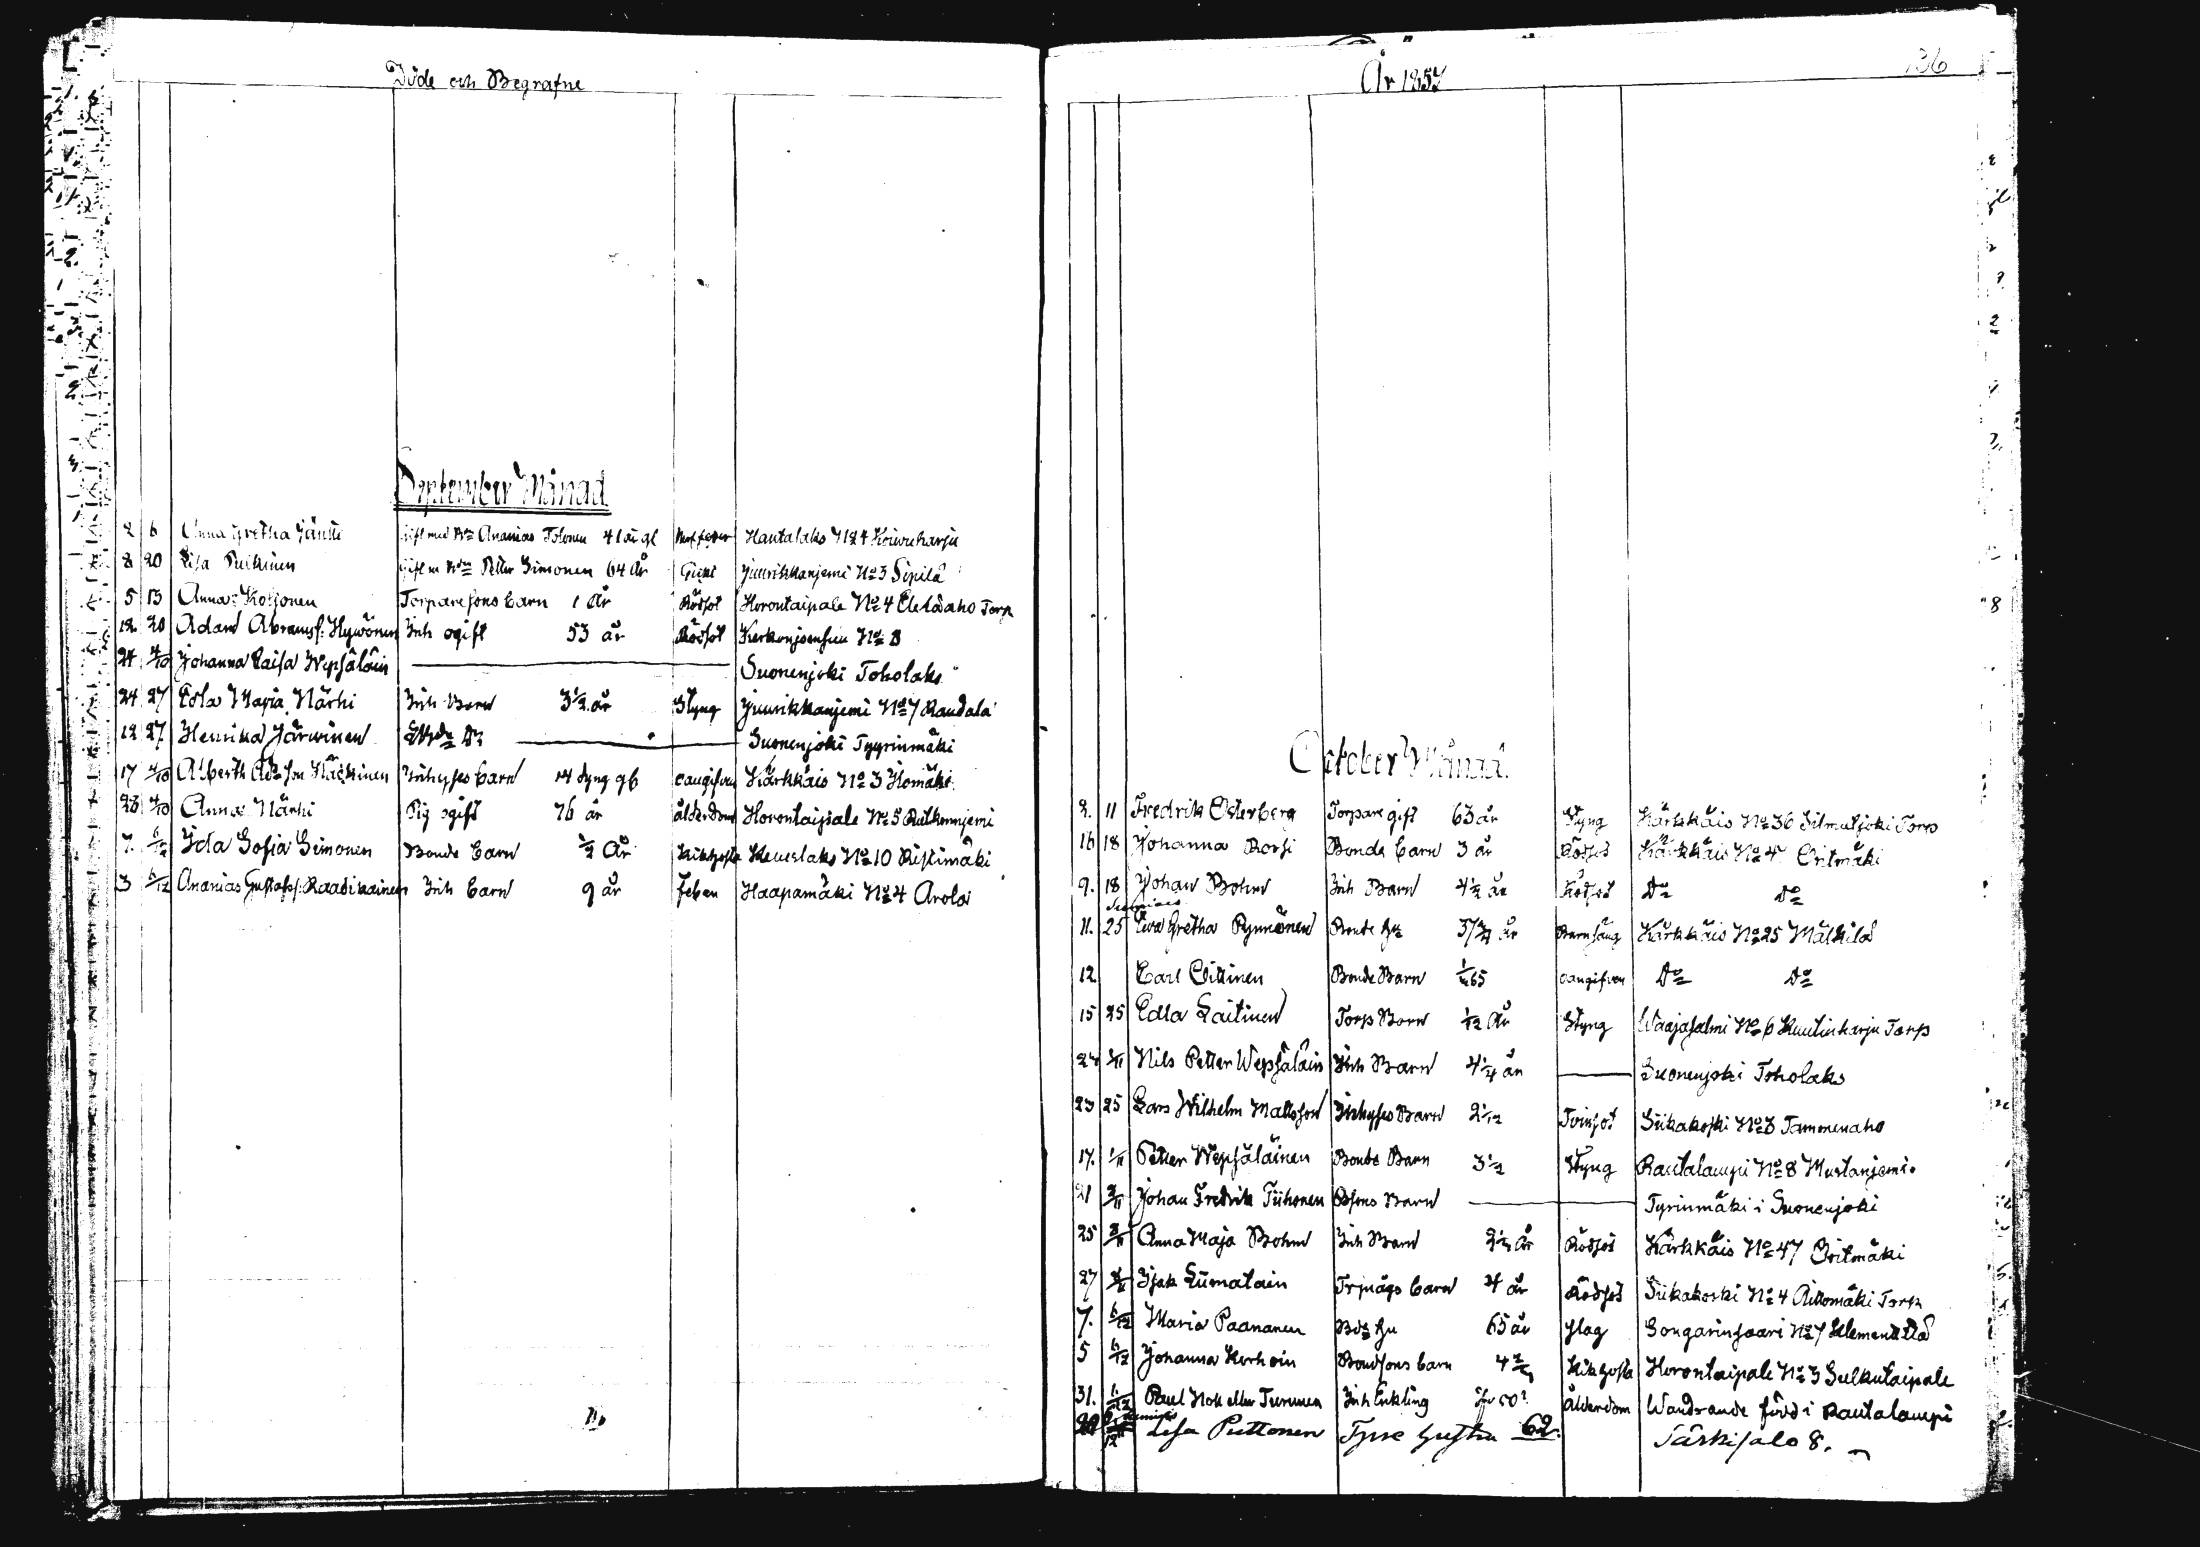 Döde och Begrafne
September Månad
2 6 Anna Gretha Jäntti gift med Bdn Ananias Tolonen 41 år gl Nerffeber Hautalaks N:o 4 Koiwuharju
8 20 Lisa Pulkinen gift m Bdn Petter Simonen 64 år Gikt Juurikkaniemi N:o 3 Sipilä
5 13 Anna Kotjonen Torparesons barn 1 år Rödsot Horontaipale N:o 4 Torp
12 20 Adam Abramsf: Hywönen Inh ogift 53 år Rödsot Kerkonjoensuu N:o 8
24 4/10 Johanna Raisa Wepsäläin Suonenjoki Toholaks
24 27 Edla Maria Närhi Inh Barn 3 1/2 år Styng Juurikkaniemi N:o 7 Raudala
12 27 Henrika Järwinen D:o Suonenjoki Tyyrinmäki
17 4/10 Alberth Ad:son Häckinen Inhyses barn 14 dyng gl oangifven Kärkkäis N:o 3 Homäki
28 4/10 Anna Närhi Pig ogift 76 år ålderdom Horontaipale N:o 5 Rutkonniemi
7. 6/12 Ida Sofia Simonen Bonde barn 1/2 år Kikhosta Kerkonjoensuu N:o 10 Ristimäki
3 6/12 Ananias Gustafsf: Raadikainen Inh barn 9 år feber Haapamäki N:o 4 Arola
År 1857
136
October Månad
2. 11 Fredrik Österberg Torpare gift 63 år Styng Kärkkäis N:o 36 Silmutjoki Torp
16 18 Johanna Rossi Bonde barn 3 år Rödsot Kärkkäis N:o 47 Oritmäki
9. 18 Johan Bohm Inh Barn 4 1/2 år Rödsot D:o D:o
11. 25 Ewa Gretha Pynnönen Bonde hu 37 år Barnsäng Kärkkäis N:o 25 Mälkilä
12. Carl Oittinen Bonde Barn oangifven D:o D:o
15 25 Edla Laitinen Torp Barn 1/12 år Styng Waajasalmi N:o 6 Kuutinharju Torp
1/11 Nils Petter Wepsäläin Inh Barn 4 1/4 år Suonenjoki Toholaks
23 25 Lars Wilhelm Mattsson Inhyses Barn 2 1/12 Twinsot Siikakoski N:o 8 Tammenaho
17. 1/11 Petter Wepsäläinen Bonde Barn 3 1/2 Styng Rautalampi N:o 8 Mustaniemi
21 Johan Fredrik Tiihonen Bdsons Barn Tyrinmäki i Suonenjoki
25 8/11 Anna Maja Bohm Inh Barn 2 1/2 år Rödsot Kärkkäis N:o 47 Oritmäki
27 Isak Liimatain Tr:mågs barn 4 år Rödsot Siikakoski N:o 4 Aittomäki Torp
7. 6/12 Maria Paananen Bds hu 65 år slag Songarinsaari N:o 7 Klementtilä
5 6/12 Johanna Korhoin Bondsons barn Kikhosta Horontaipale N:o 3 Sulkutaipale
31. 6/12 Paul Nok eller Turunen Inh Enkling Ålderdom Wandrande född i Rautalampi
Lisa Puttonen 62. Särkisalo 8.